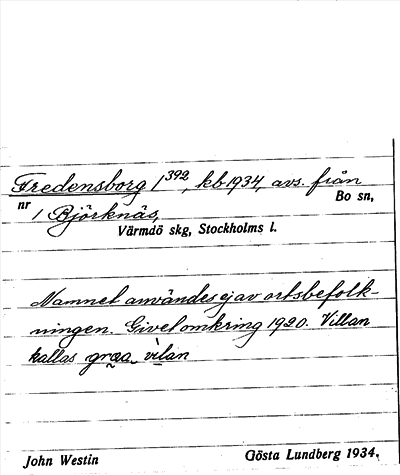 Fredensborg 1³⁹², kb 1934, avs. från
nr Bo sn,
1 Björknäs,
Värmdö skg, Stockholms l.
Namnet användes ej av ortsbefolk-
ningen. Givet omkring 1920. Villan
kallas grœa vilan
John Westin Gösta Lundberg 1934.